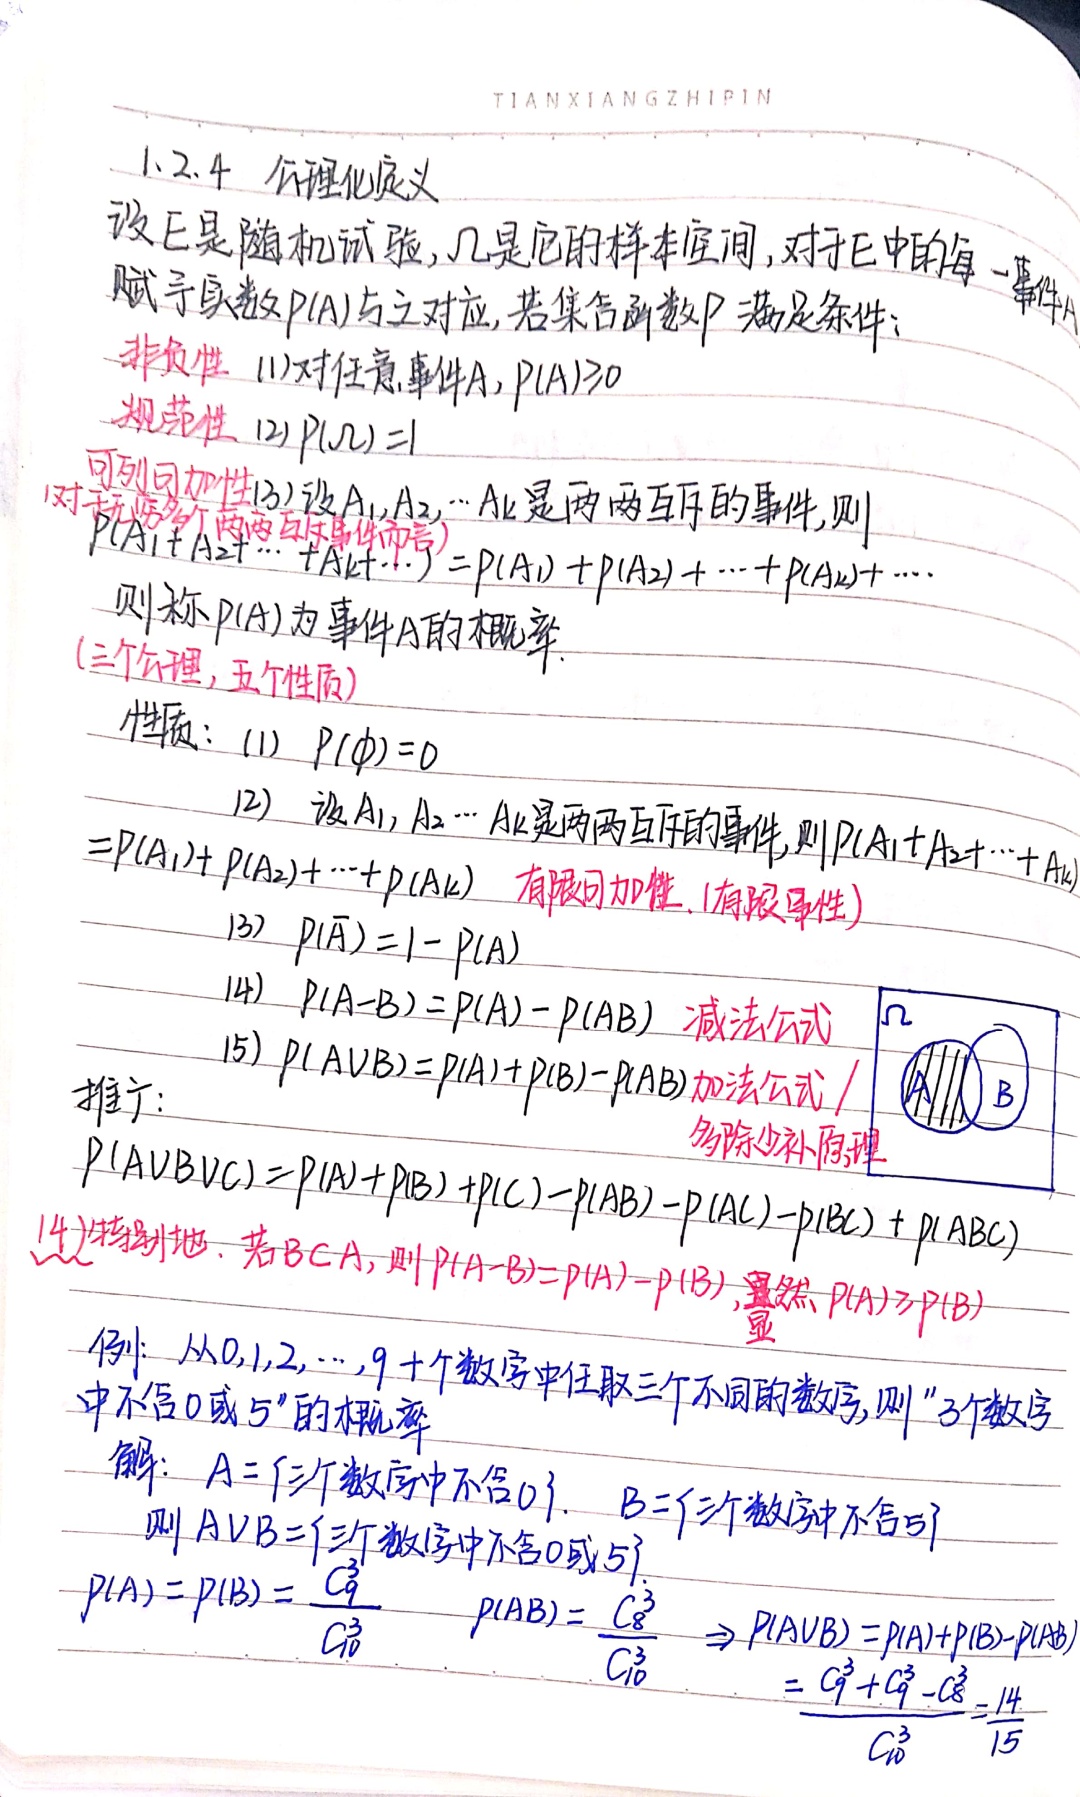 TIANXIANGZHIPIN
1.2.4 公理化定义
设E是随机试验,Ω是它的样本空间,对于E中的每一事件A
赋予实数P(A)与之对应,若集合函数P满足条件:
非负性 (1)对任意事件A,P(A)≥0
规范性 (2)P(Ω)=1
可列可加性(3)设A₁,A₂,…Aₖ是两两互斥的事件,则
(对于无穷多个两两互斥事件而言)
P(A₁+A₂+…+Aₖ+…)=P(A₁)+P(A₂)+…+P(Aₖ)+….
则称P(A)为事件A的概率.
(三个公理,五个性质)
性质:(1) P(φ)=0
(2) 设A₁,A₂…Aₖ是两两互斥的事件,则P(A₁+A₂+…+Aₖ)
=P(A₁)+P(A₂)+…+P(Aₖ) 有限可加性.(有限事性)
(3) P(Ā)=1-P(A)
(4) P(A-B)=P(A)-P(AB) 减法公式
(5) P(A∪B)=P(A)+P(B)-P(AB) 加法公式/
多除少补原理
Ω
A B
推广:
P(A∪B∪C)=P(A)+P(B)+P(C)-P(AB)-P(AC)-P(BC)+P(ABC)
(4)特别地.若B⊂A,则P(A-B)=P(A)-P(B),显然P(A)≥P(B)
显
例:从0,1,2,…,9十个数字中任取三个不同的数字,则"3个数字
中不含0或5"的概率
解:A={三个数字中不含0}. B={三个数字中不含5}
则A∪B={三个数字中不含0或5}.
P(A)=P(B)=C₉³/C₁₀³ P(AB)=C₈³/C₁₀³ ⇒P(A∪B)=P(A)+P(B)-P(AB)
=(C₉³+C₉³-C₈³)/C₁₀³=14/15